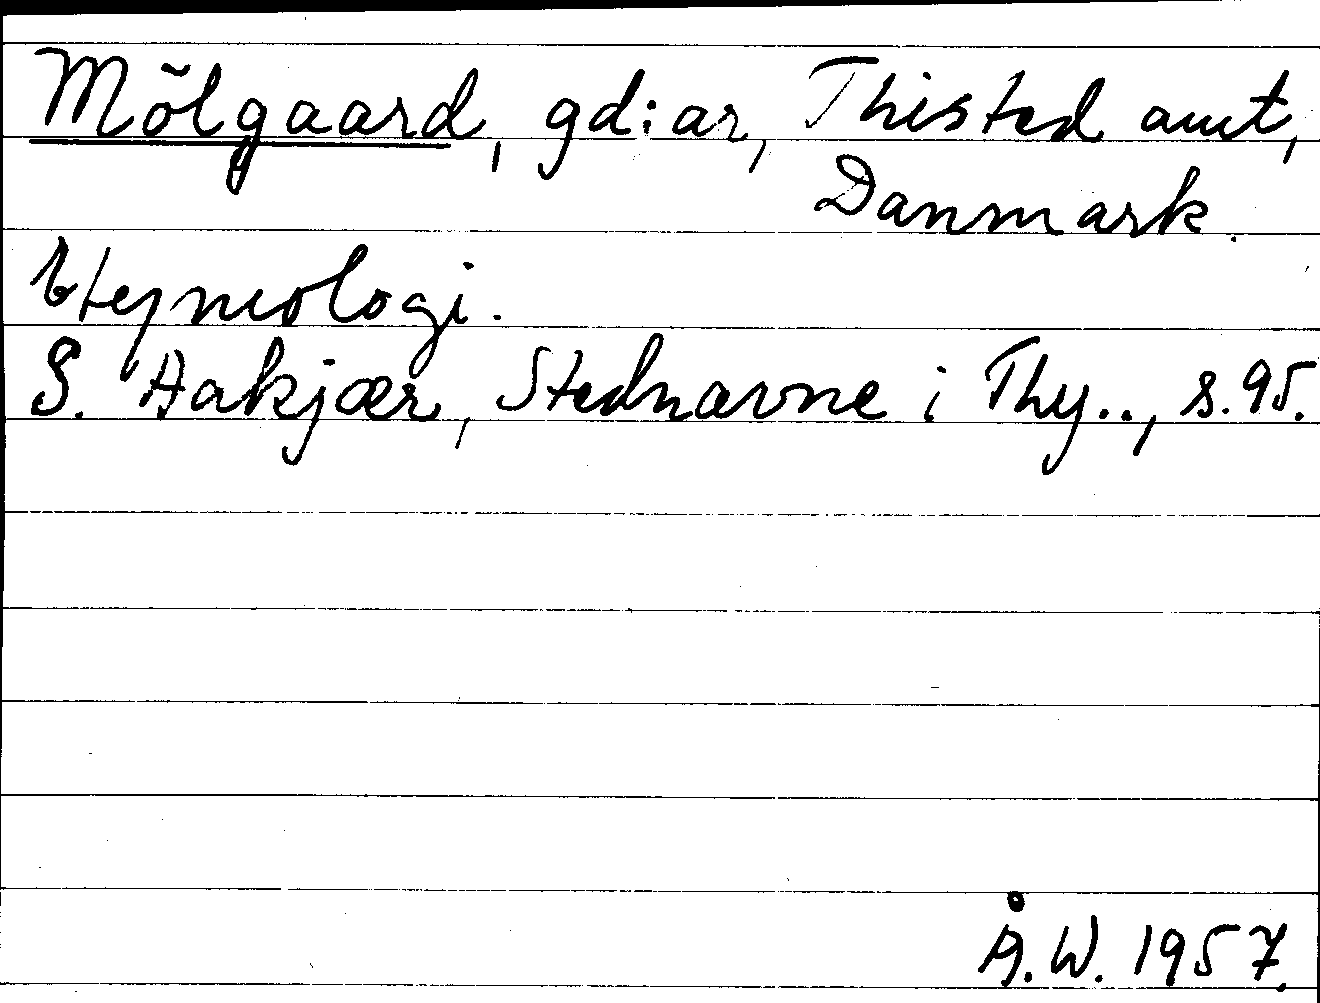 Mölgaard, gd:ar, Thisted amt,
Danmark.
Etymologi.
S. Aakjær, Stednavne i Thy.., s. 95.
Å. W. 1957.